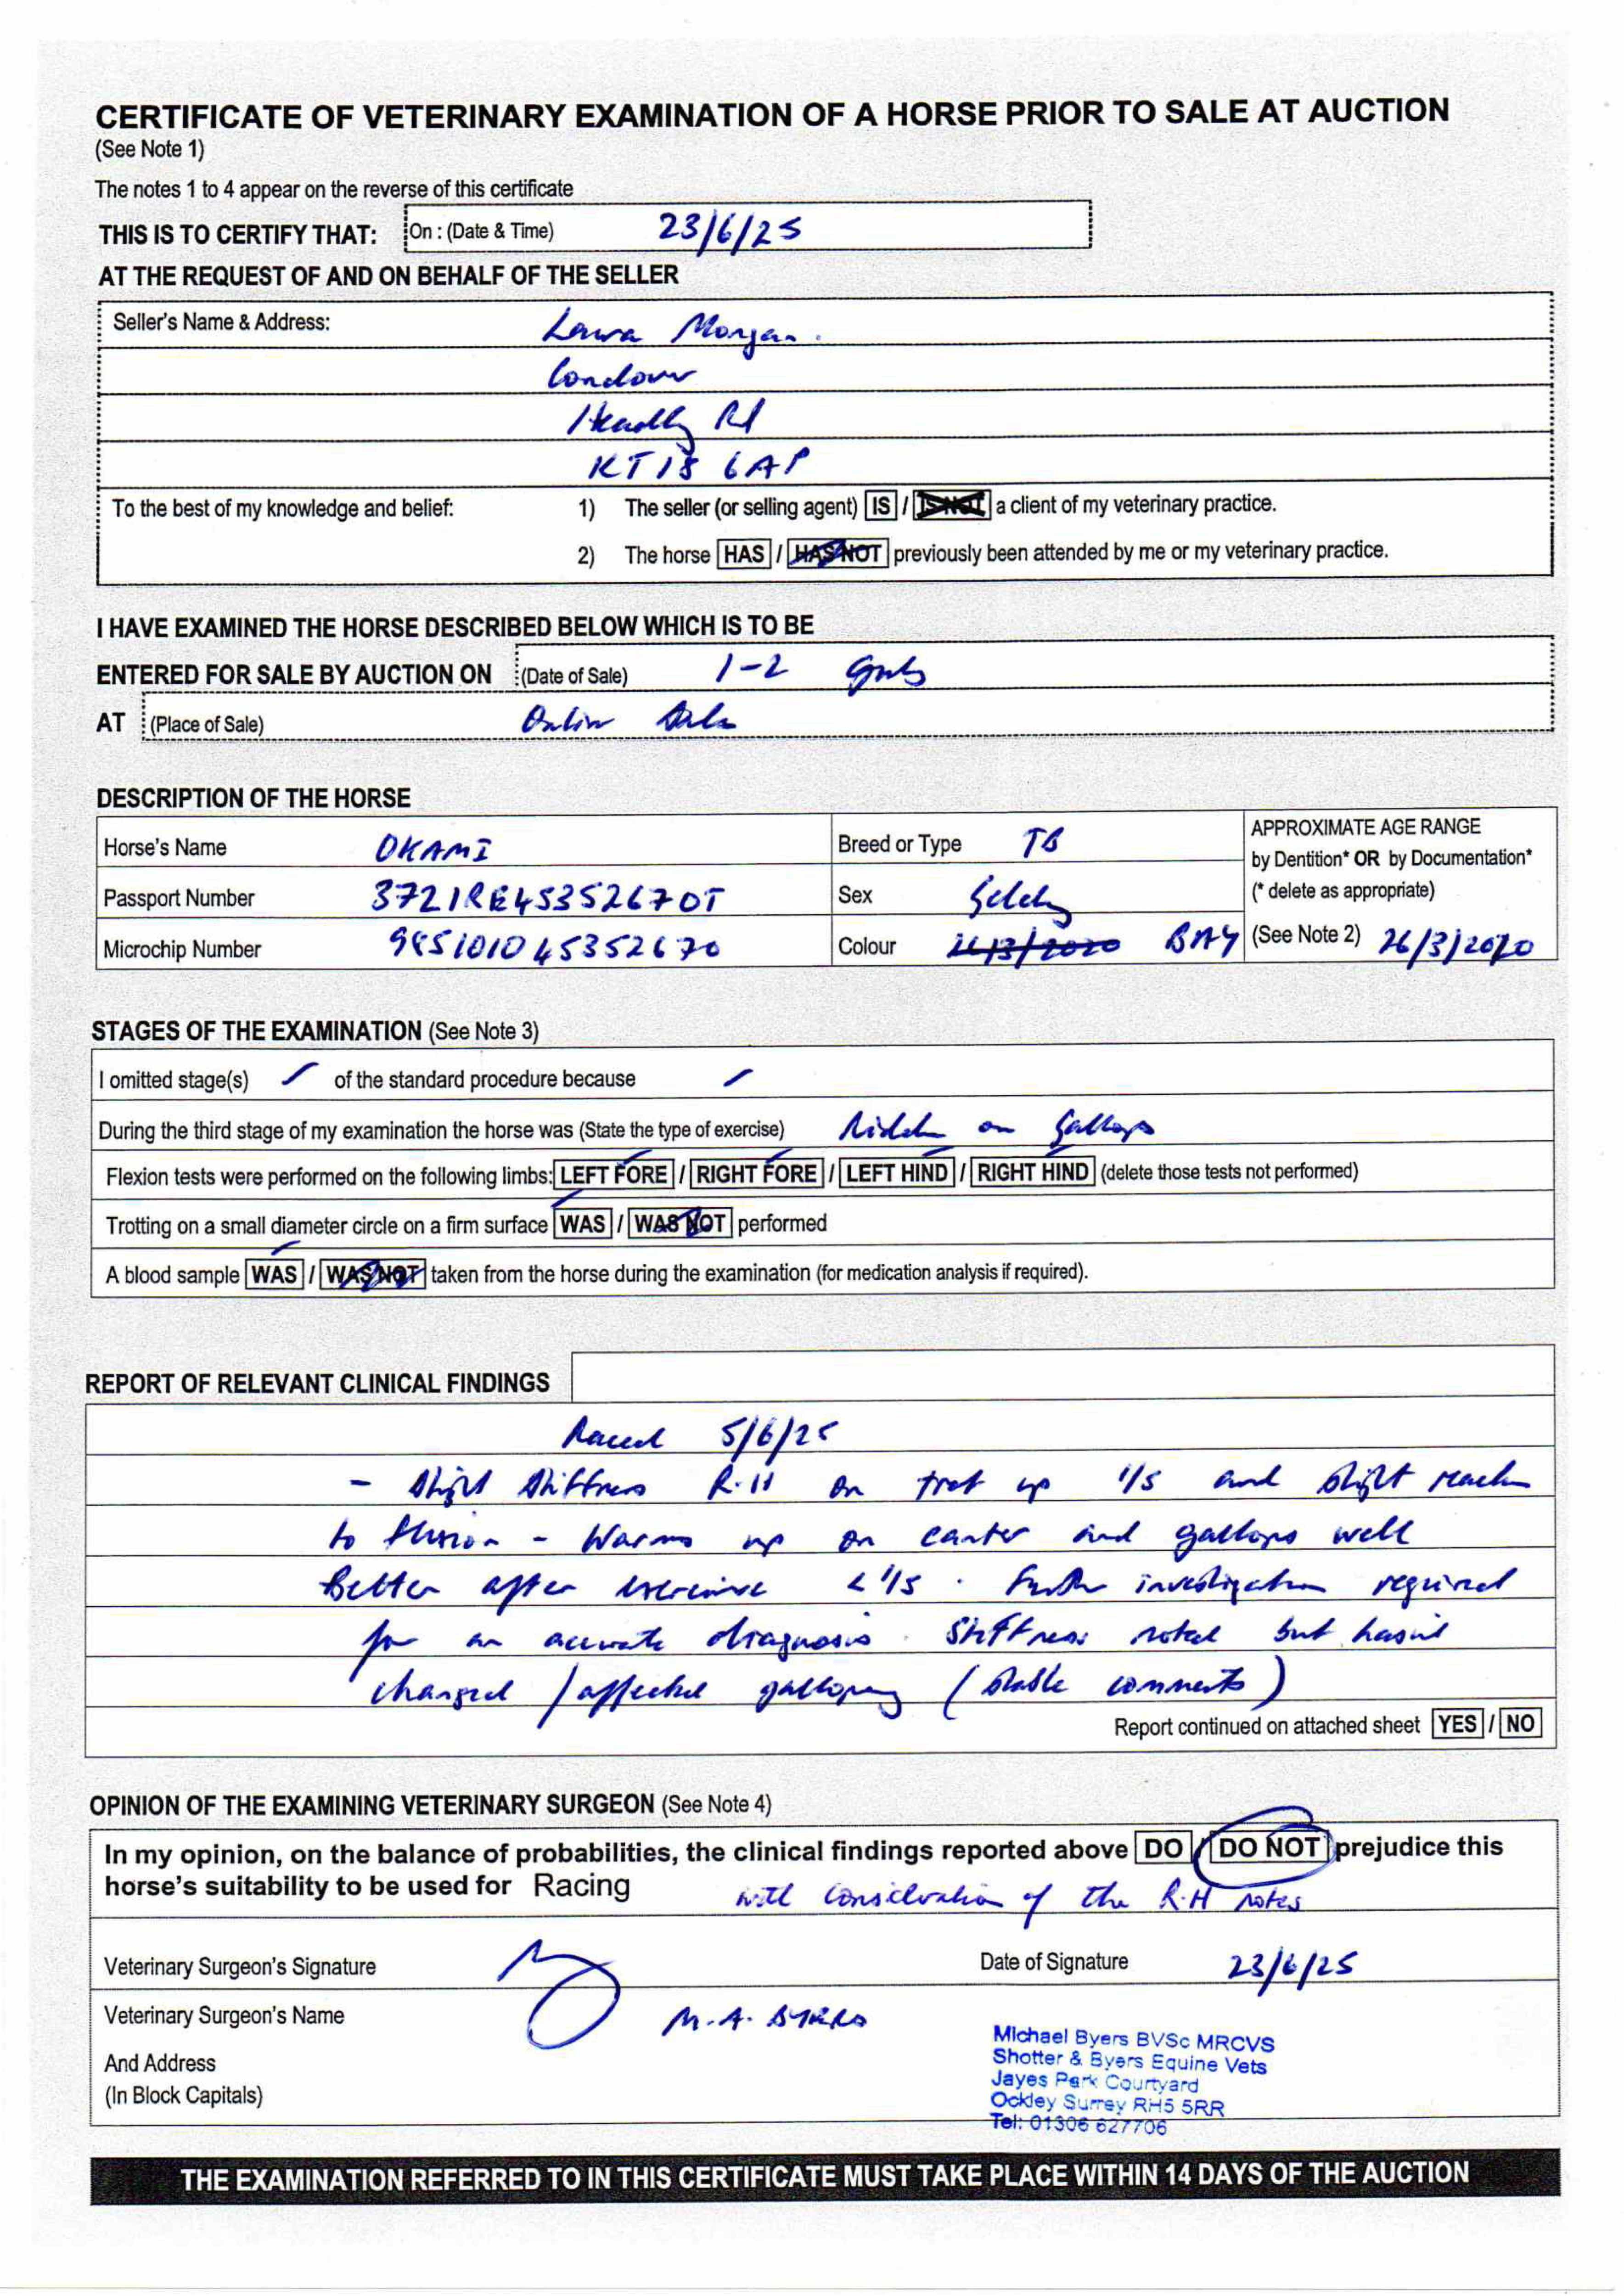 CERTIFICATE OF VETERINARY EXAMINATION OF A HORSE PRIOR TO SALE AT AUCTION
(See Note 1)
The notes 1 to 4 appear on the reverse of this certificate
THIS IS TO CERTIFY THAT: On : (Date & Time) 23/6/25
AT THE REQUEST OF AND ON BEHALF OF THE SELLER
Seller's Name & Address: Laura Morgan.
Condover
Headley Rd
KT18 6AP
To the best of my knowledge and belief: 1) The seller (or selling agent) IS / IS NOT a client of my veterinary practice.
2) The horse HAS / HAS NOT previously been attended by me or my veterinary practice.
I HAVE EXAMINED THE HORSE DESCRIBED BELOW WHICH IS TO BE
ENTERED FOR SALE BY AUCTION ON (Date of Sale) 1-2
AT (Place of Sale) Online Sale
DESCRIPTION OF THE HORSE
Horse's Name OKAMI Breed or Type TB APPROXIMATE AGE RANGE
by Dentition* OR by Documentation*
Passport Number 372IRE45352670T Sex Gelding (* delete as appropriate)
Microchip Number 985101045352670 Colour 26/3/2020 BAY (See Note 2) 26/3/2020
STAGES OF THE EXAMINATION (See Note 3)
I omitted stage(s) / of the standard procedure because /
During the third stage of my examination the horse was (State the type of exercise) Ridden on Gallops
Flexion tests were performed on the following limbs: LEFT FORE / RIGHT FORE / LEFT HIND / RIGHT HIND (delete those tests not performed)
Trotting on a small diameter circle on a firm surface WAS / WAS NOT performed
A blood sample WAS / WAS NOT taken from the horse during the examination (for medication analysis if required).
REPORT OF RELEVANT CLINICAL FINDINGS
Raced 5/6/25
- Slight Stiffness R.H on trot up 1/5 and slight reaction
to flexion - Warms up on canter and gallops well
Better after exercise <1/5 . Further investigation required
for an accurate diagnosis. Stiffness noted but hasnt
changed / affected galloping (stable comments)
Report continued on attached sheet YES / NO
OPINION OF THE EXAMINING VETERINARY SURGEON (See Note 4)
In my opinion, on the balance of probabilities, the clinical findings reported above DO / DO NOT prejudice this
horse's suitability to be used for Racing with consideration of the R.H notes
Veterinary Surgeon's Signature Date of Signature 23/6/25
Veterinary Surgeon's Name M.A. BYERS
And Address
(In Block Capitals)
Michael Byers BVSc MRCVS
Shotter & Byers Equine Vets
Jayes Park Courtyard
Ockley Surrey RH5 5RR
Tel: 01306 627706
THE EXAMINATION REFERRED TO IN THIS CERTIFICATE MUST TAKE PLACE WITHIN 14 DAYS OF THE AUCTION